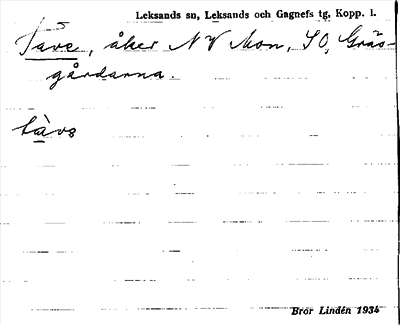 Leksands sn, Leksands och Gagnefs tg, Kopp. l.
Tavs, åker NV Mon, SO, Gräs-
gårdarna.
tàvs
Bror Lindén 1934